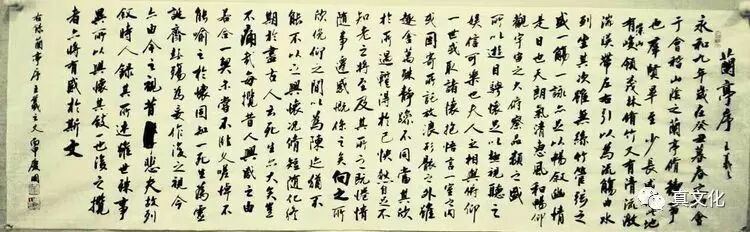 蘭亭序 王羲之
永和九年歲在癸丑暮春之初會
于會稽山陰之蘭亭脩稧事
也羣賢畢至少長咸集此地
有崇山峻領茂林脩竹又有清流激
湍暎帶左右引以為流觴曲水
列坐其次雖無絲竹管弦之
盛一觴一詠亦足以暢敘幽情
是日也天朗氣清惠風和暢仰
觀宇宙之大俯察品類之盛
所以遊目騁懷足以極視聽之
娛信可樂也夫人之相與俯仰
一世或取諸懷抱悟言一室之內
或因寄所託放浪形骸之外雖
趣舍萬殊靜躁不同當其欣
於所遇暫得於己快然自足不
知老之將至及其所之既惓情
隨事遷感慨係之矣向之所
欣俛仰之間以為陳迹猶不
能不以之興懷況脩短隨化終
期於盡古人云死生亦大矣豈
不痛哉每攬昔人興感之由
若合一契未嘗不臨文嗟悼不
能喻之於懷固知一死生為虛
誕齊彭殤為妄作後之視今
亦由今之視昔悲夫故列
敘時人錄其所述雖世殊事
異所以興懷其致一也後之攬
者亦將有感於斯文
右錄蘭亭序王羲之文 丙申
真文化